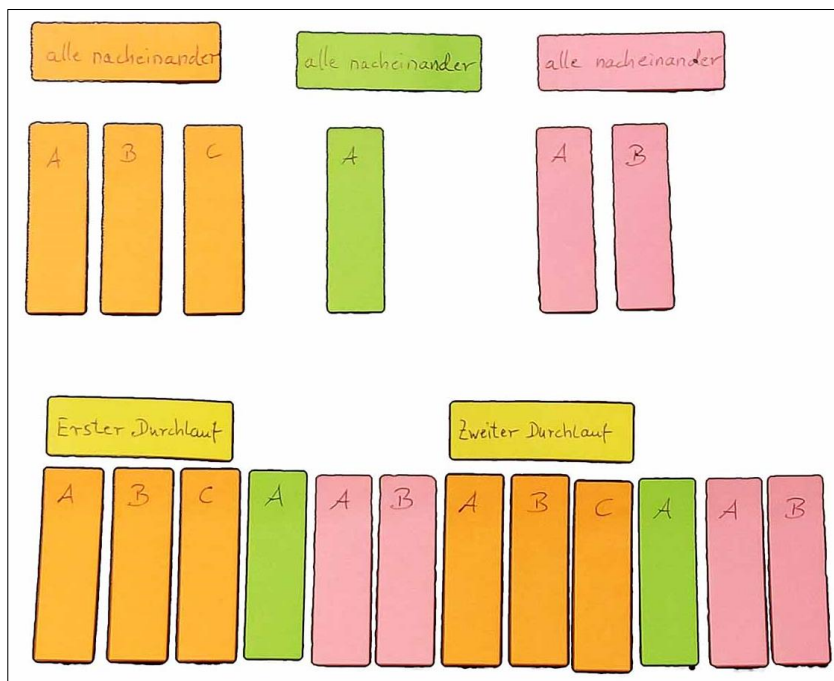 alle nacheinander alle nacheinander alle nacheinander
A B C A A B
Erster Durchlauf Zweiter Durchlauf
A B C A A B A B C A A B